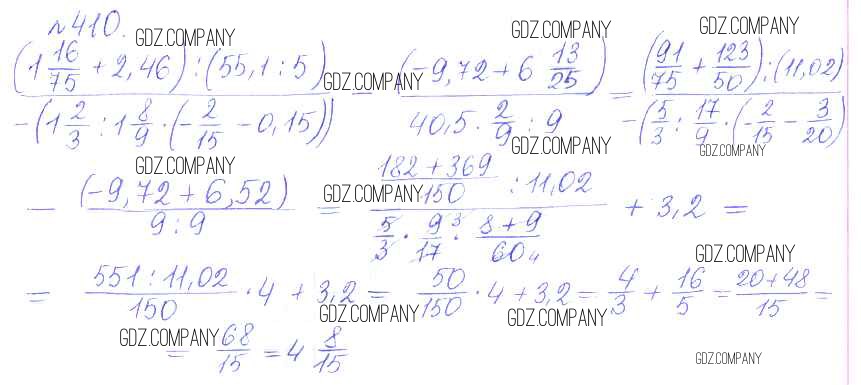 №410.
(1 16/75 + 2,46) : (55,1 : 5) / -(1 2/3 : 1 8/9 · (-2/15 - 0,15)) - (-9,72 + 6 13/25) / 40,5 · 2/9 : 9 = (91/75 + 123/50) : (11,02) / -(5/3 : 17/9 · (-2/15 - 3/20)
- (-9,72 + 6,52) / 9 : 9 = 182 + 369 / 150 : 11,02 / 5/3 · 9 3/17 · 8 + 9/60 4 + 3,2 =
= 551 : 11,02 / 150 · 4 + 3,2 = 50/150 · 4 + 3,2 = 4/3 + 16/5 = 20 + 48/15 =
= 68/15 = 4 8/15
GDZ.COMPANY
GDZ.COMPANY
GDZ.COMPANY
GDZ.COMPANY
GDZ.COMPANY
GDZ.COMPANY
GDZ.COMPANY
GDZ.COMPANY
GDZ.COMPANY
GDZ.COMPANY
GDZ.COMPANY
GDZ.COMPANY
GDZ.COMPANY
GDZ.COMPANY